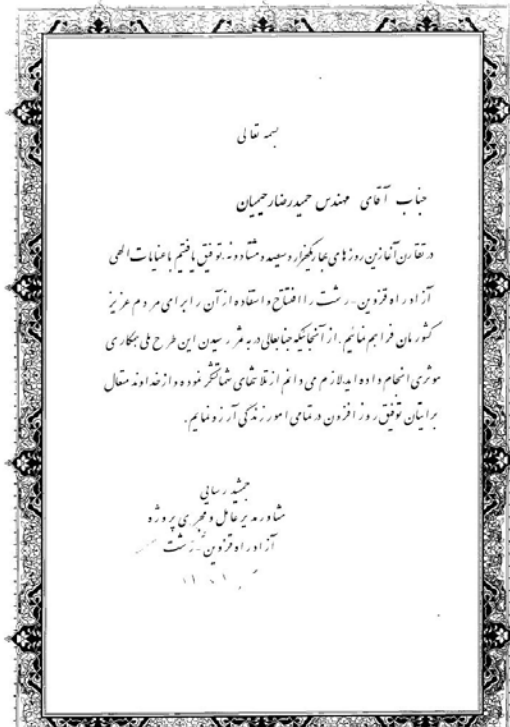 بسمه تعالی
جناب آقای مهندس حمیدرضا رحیمیان
در تقارن آغازین روزهای بهار یکهزار و سیصد و هشتاد و نه توفیق یافتیم با عنایات الهی
آزادراه قزوین-رشت را افتتاح و استفاده از آن را برای مردم عزیز
کشورمان فراهم نمائیم. از آنجائیکه جنابعالی در به ثمر رسیدن این طرح ملی همکاری
موثری انجام داده اید لازم می دانم از تلاشهای شما تشکر نموده و از خداوند متعال
برایتان توفیق روز افزون در تمامی امور زندگی آرزو نمایم.
جمشید رسایی
مشاور مدیرعامل و مجری پروژه
آزادراه قزوین-رشت